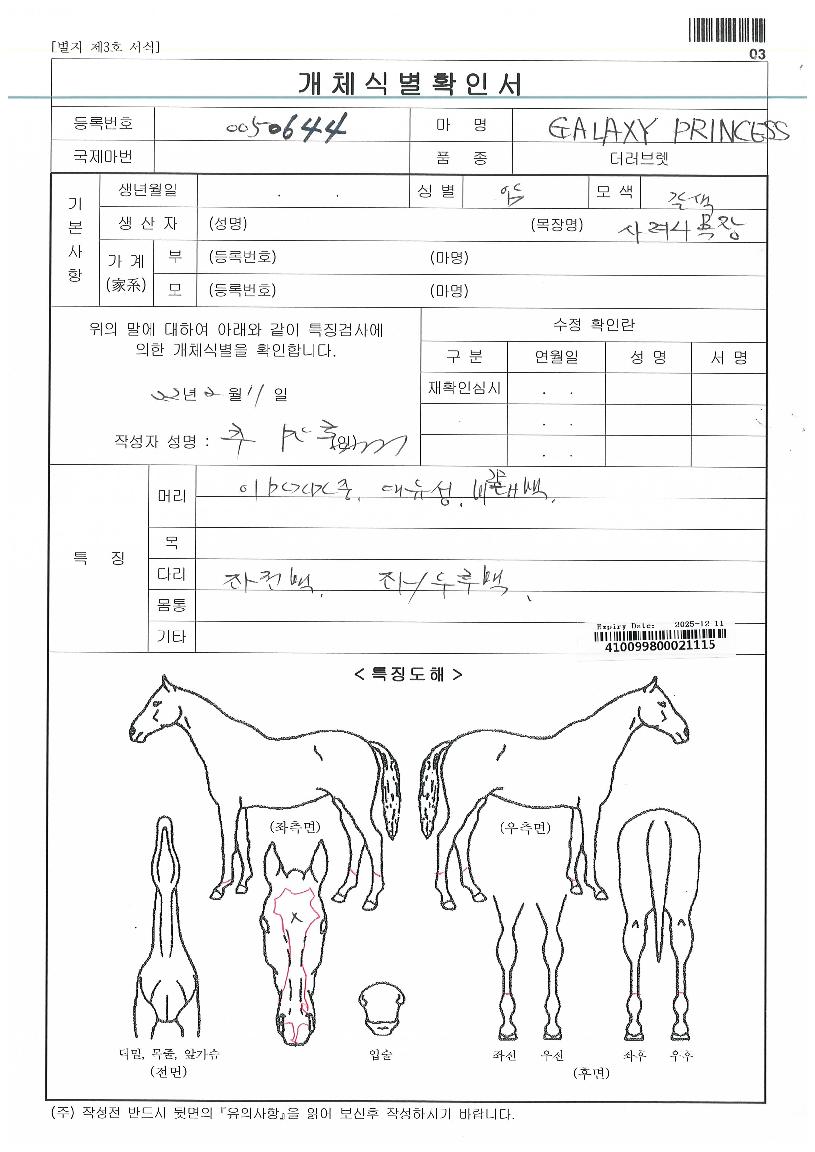 [별지 제3호 서식]
03
개체식별확인서
등록번호 0050644 마 명 GALAXY PRINCESS
국제마번 품 종 더러브렛
기본사항
생년월일 . . 성 별 암 모 색 갈색
생 산 자 (성명) (목장명) 목장
가 계 (家系) 부 (등록번호) (마명)
모 (등록번호) (마명)
위의 말에 대하여 아래와 같이 특징검사에
의한 개체식별을 확인합니다.
22년 2월 11일
작성자 성명 : (인)
수정 확인란
구 분 연월일 성 명 서 명
재확인심시 . .
. .
. .
특 징
머리
목
다리 좌전백,
몸통
기타
Expiry Date: 2025-12-11
410099800021115
< 특징도해 >
(좌측면) (우측면)
턱밑, 목줄, 앞가슴
(전면)
입술
좌전 우전 좌후 우후
(후면)
(주) 작성전 반드시 뒷면의 『유의사항』을 읽어 보신후 작성하시기 바랍니다.